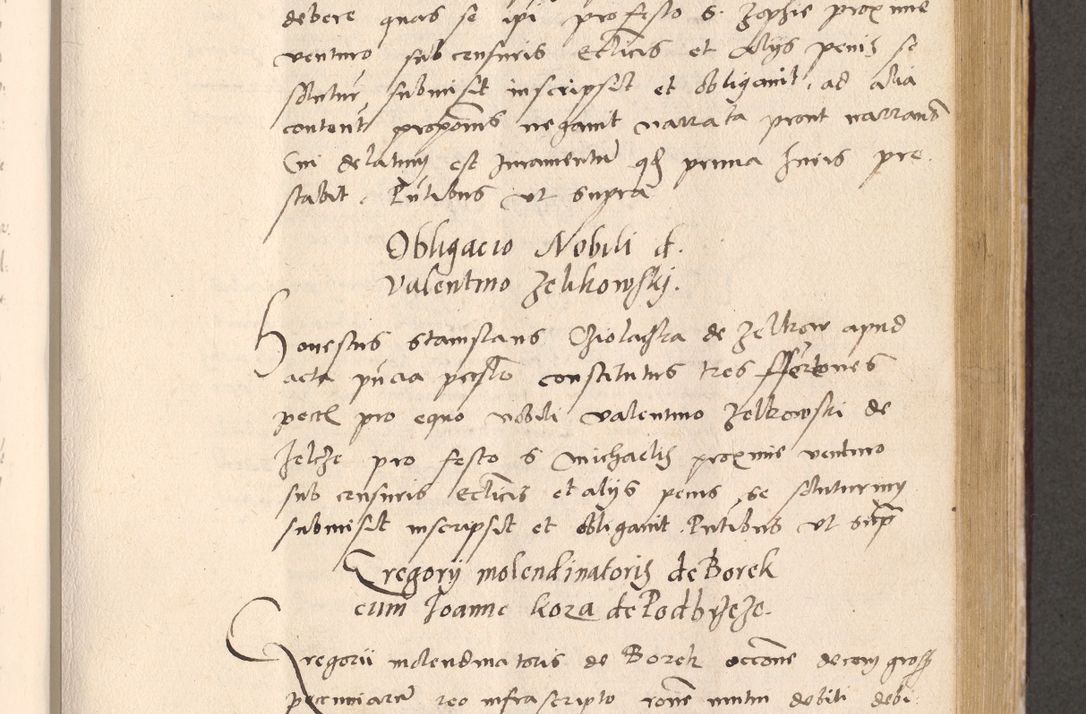 debere quas se ipi pro festo S. Zophie proxime
venturo sub censuris Eccticis et alys penis se
soluturum submisit inscripsit et obligavit, ad alia
content propositionis negavit narrata pront narrant
Cui delatum est Juramentu qd prima Juris pre
stabit. Pntibus ut supra
Obligacio Nobili d.
Valentino Zelikowskj.
Honestus Stanislaus de Zelkow apud
acta pncia psonlr constitutus tres ffertones
pro equo nobili Valentino Zelkowski de
pro festo S Michaelis proxime venturo
sub censuris Eccticis et alijs penis, se soluturum
submisit inscripsit et obligavit. Pntibus ut supra
Gregorij molendinatoris de Borek
cum Joanne Koza de Podbrzeze.
Gregorii molendinatoris de Borek occone decem gross
pecuniare reo infrascripto rone mutui debiti debi